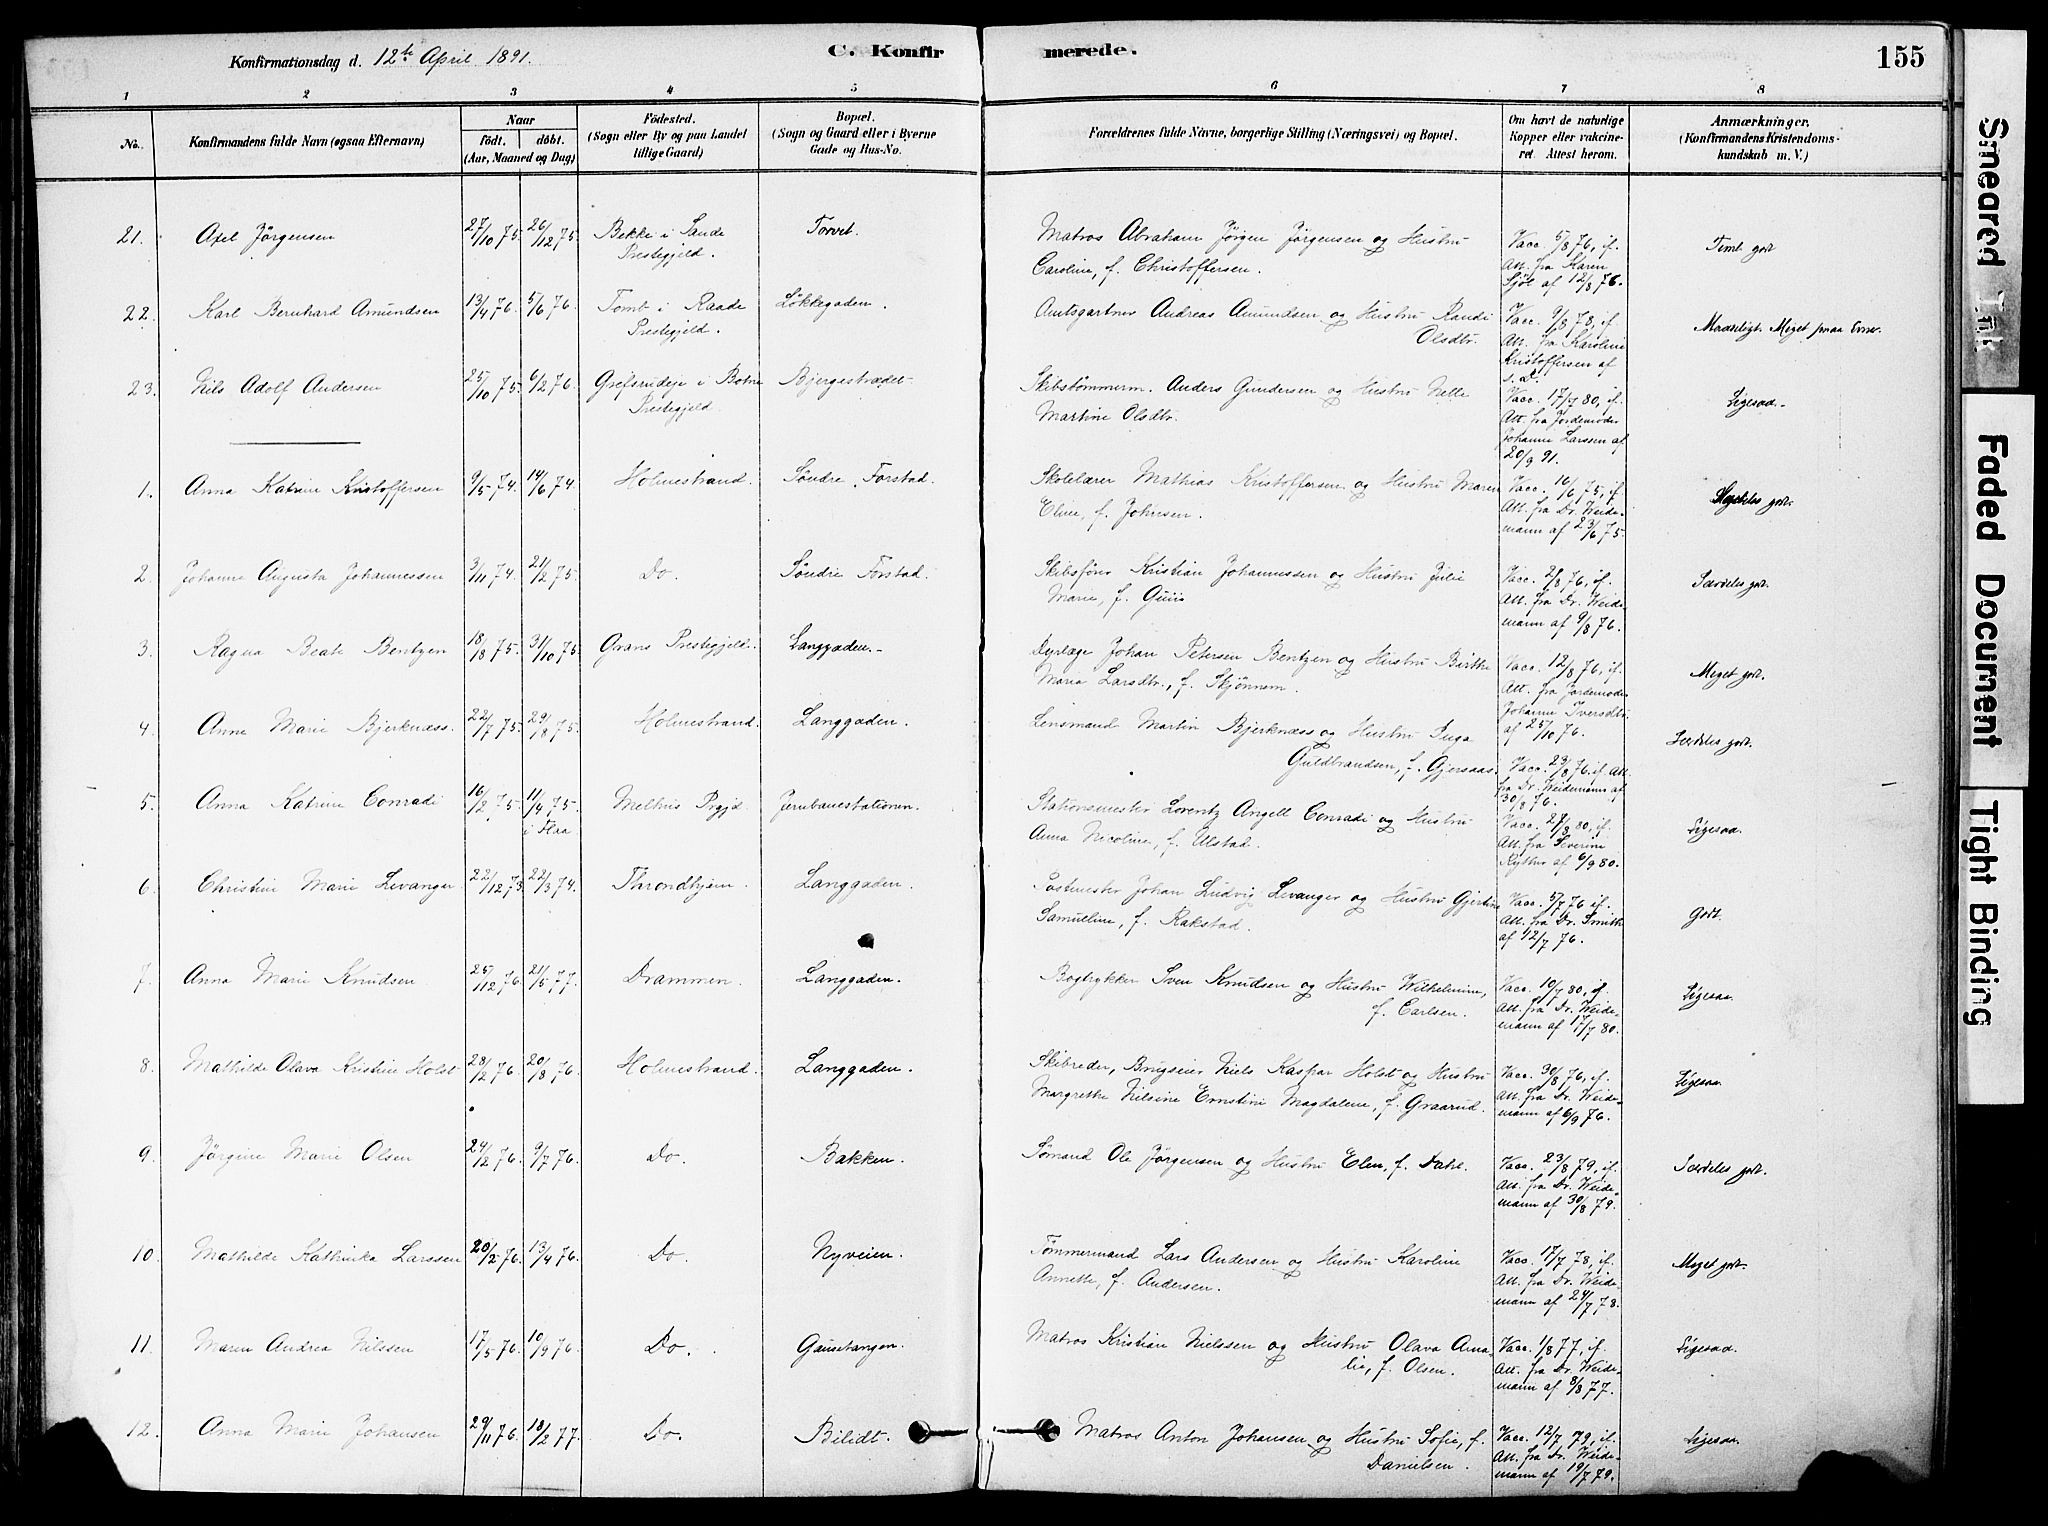 Konfirmationsdag d. 12te April 1891. C. Konfirmerede. 155
1 2 3 4 5 6 7 8
No. Konfirmandens fulde Navn (ogsaa Efternavn) Naar födt. döbt. (Aar, Maaned og Dag) Födested. (Sogn eller By og paa Landet tillige Gaard) Bopæl. (Sogn og Gaard eller i Byerne Gade og Hus-No. Forældrenes fulde Navne, borgerlige Stilling (Næringsvei) og Bopæl. Om havt de naturlige Kopper eller vakcineret. Attest herom. Anmærkninger. (Konfirmandens Kristendomskundskab m. V.)
21. Axel Jörgensen 27/10 75. 26/12 75. Bekke i Sande Prestegjeld. Torvet. Matros Abraham Jörgen Jörgensen og Hustru Caroline, f. Christoffersen. Vacc. 5/8 76, if. Att. fra Karen Sjöl af 12/8 76. Teml. godt
22. Karl Bernhard Amundsen 13/4 76. 5/6 76. Tomb i Raade Prestegjeld. Løkkegaden. Amtsgartner Andreas Amundsen og Hustru Randi Olsdtr. Vacc. 9/8 78, if. Att. fra Karoline Kristoffersen af s. D. Maadeligt. Meget smaa Evner.
23. Nils Adolf Andersen 25/10 75. 6/2 76. Grefsrudeje i Botne Prestegjeld. Bjergestrædet. Skibstömmerm. Anders Gundersen og Hustru Nelle Martine Olsdtr. Vacc. 17/7 80, if. Att. fra Jordemoder Johanne Larssen af 20/3 91. Ligesaa.
1. Anna Katrine Kristoffersen 9/5 74. 14/6 74. Holmestrand. Söndre Forstad. Skolelærer Mathias Kristoffersen og Hustru Maren Eline, f. Johnsen. Vacc. 16/6 75, if. Att. fra Dr. Weidemann af 23/6 75. Særdeles godt.
2. Johanne Augusta Johannessen 3/11 74. 21/2 75. Do. Söndre Forstad. Skibsförer Kristian Johannessen og Hustru Julie Marie, f. Vacc. 2/8 76, if. Att. fra Dr. Weidemann af 9/8 76. Særdeles godt.
3. Ragna Beate Bentzen 18/8 75. 31/10 75. Grans Prestegjeld. Langgaden. Dyrlæge Johan Petersen Bentzen og Hustru Birthe Maria Larsdtr., f. Skjönnem. Vacc. 12/8 76, if. Att. fra Jordemoder Johanne Iversdtr. af 25/10 76. Meget godt.
4. Anne Marie Bjerknæss. 22/7 75. 29/8 75. Holmestrand. Langgaden. Lensmand Martin Bjerknæss og Hustru Inga Guldbrandsen, f. Gjersaas. Vacc. 23/8 76, if. Att. fra Dr. Weidemann af 30/8 76. Særdeles godt.
5. Anna Katrine Conradi 16/2 75. 11/4 75. i Flaa Melhus Prgjd. Jernbanestationen. Stationsmester Lorentz Angell Conradi og Hustru Anna Nicoline, f. Ulstad. Vacc. 27/8 80, if. Att. fra Severine Rytter af 6/9 80. Ligesaa.
6. Christine Marie Levanger 22/12 73. 22/3 74. Throndhjem. Langgaden. Postmester Johan Ludvig Levanger og Hustru Gjertine Samueline, f. Rakstad. Vacc. 5/7 76 if. Att. fra Dr. Smith af 12/7 76. Godt.
7. Anna Marie Knudsen 25/12 76. 21/5 77. Drammen. Langgaden. Bogtrykker Sven Knudsen og Hustru Wilhelmine, f. Carlsen. Vacc. 10/7 80, if. Att. fra Dr. Weidemann af 17/7 80. Ligesaa.
8. Mathilde Olava Kristine Holst 28/2 76. 20/8 76. Holmestrand. Langgaden. Skibreder, Brugseier Niels Kaspar Holst og Hustru Margrethe Nilsine Ernstine Magdalene, f. Graarud. Vacc. 30/8 76, if. Att. fra Dr. Weidemann af 6/9 76. Ligesaa.
9. Jörgine Marie Olsen 24/2 76. 9/7 76. Do. Bakken. Sömand Ole Jörgensen og Hustru Elen, f. Dahl. Vacc. 23/8 79, if. Att. fra Dr. Weidemann af 30/8 79. Særdeles godt.
10. Mathilde Kathinka Larssen 20/2 76. 13/4 76. Do. Nyveien. Tömmermand Lars Andersen og Hustru Karoline Annette, f. Andersen. Vacc. 17/7 78, if. Att. fra Dr. Weidemann af 24/7 78. Meget godt.
11. Maren Andrea Nilssen 17/5 76. 10/9 76. Do. Gausetangen. Matros Kristian Nielssen og Hustru Olava Amalie, f. Olsen. Vacc. 1/8 77, if. Att. fra Dr. Weidemann af 8/8 77. Ligesaa.
12. Anna Marie Johansen 29/11 76. 18/2 77. Do. Bilidt. Matros Anton Johansen og Hustru Sofie, f. Danielsen. Vacc. 12/7 79, if. Att. fra Dr. Weidemann af 19/7 79. Ligesaa.
Smeared Ink
Faded Document
Tight Binding